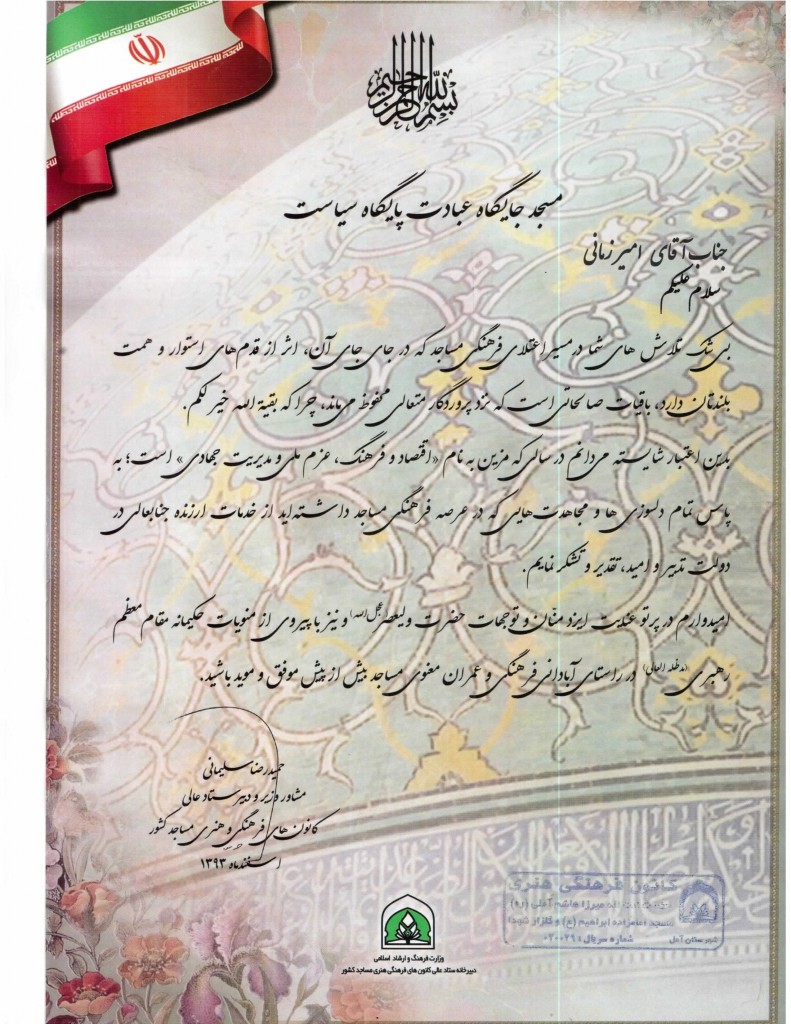 بسم الله الرحمن الرحیم
مسجد جایگاه عبادت پایگاه سیاست
جناب آقای امیر زمانی
سلام علیکم
بی شک تلاش های شما در مسیر اعتلای فرهنگی مساجد که در جای جای آن، اثر از قدم‌های استوار و همت
بلندتان دارد، باقیات صالحاتی است که نزد پروردگار متعالی محفوظ می‌ماند، چرا که بقیة الله خیر لکم.
بدین اعتبار شایسته می‌دانم در سالی که مزین به نام «اقتصاد و فرهنگ، عزم ملی و مدیریت جهادی» است؛ به
پاس تمام دلسوزی ها و مجاهدت‌هایی که در عرصه فرهنگی مساجد داشته‌اید از خدمات ارزنده جنابعالی در
دولت تدبیر و امید، تقدیر و تشکر نمایم.
امیدوارم در پرتو عنایت ایزد منّان و توجهات حضرت ولیعصر(عجل الله) و نیز با پیروی از منویات حکیمانه مقام معظم
رهبری(مدظله العالی) در راستای آبادانی فرهنگی و عمران معنوی مساجد بیش از پیش موفق و موید باشید.
حمیدرضا سلیمانی
مشاور وزیر و دبیر ستاد عالی
کانون های فرهنگی و هنری مساجد کشور
اسفندماه ۱۳۹۳
کانون فرهنگی هنری
میرزا هاشم آملی (ره)
مسجد امامزاده ابراهیم (ع) و گلزار شهدا
شهرستان آمل
شماره سریال: ۰۲۰۰۲۹
وزارت فرهنگ و ارشاد اسلامی
دبیرخانه ستاد عالی کانون های فرهنگی هنری مساجد کشور